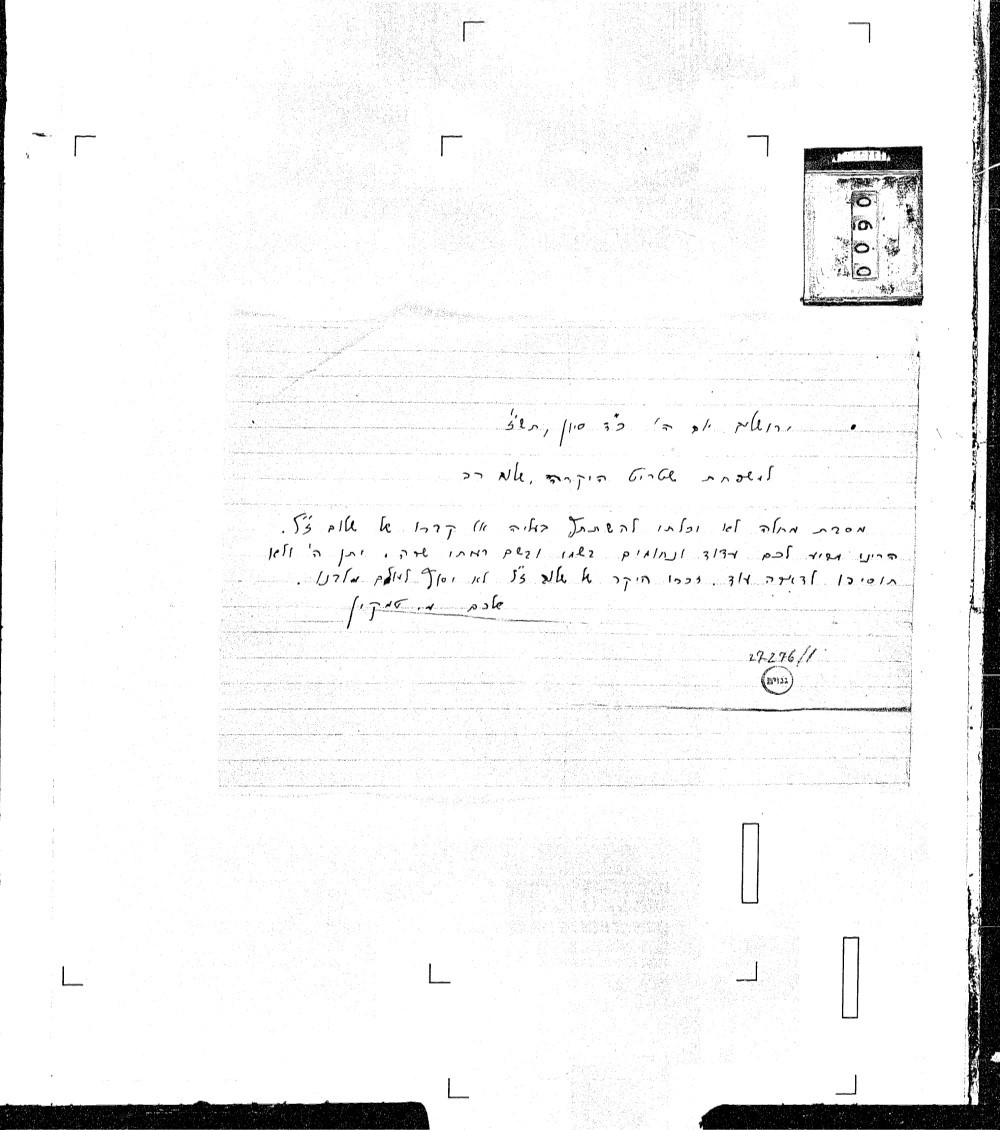 0090
ירושלים יום ה' כ"ד סיון, תשל"
למשפחת שטרית היקרה, שלום רב
מסבת מחלה לא יכלתי להשתתף בעליה אל קברו של שלום ז"ל.
הריני מביע לכם עידוד ונחומים בשמי ובשם רעיתי שרה. יתן ה' ולא
תוסיפו לדאבה עוד. זכרו היקר של שלום ז"ל לא יסוף לעולם מלבנו.
שלכם מ. טמקין
27276/1